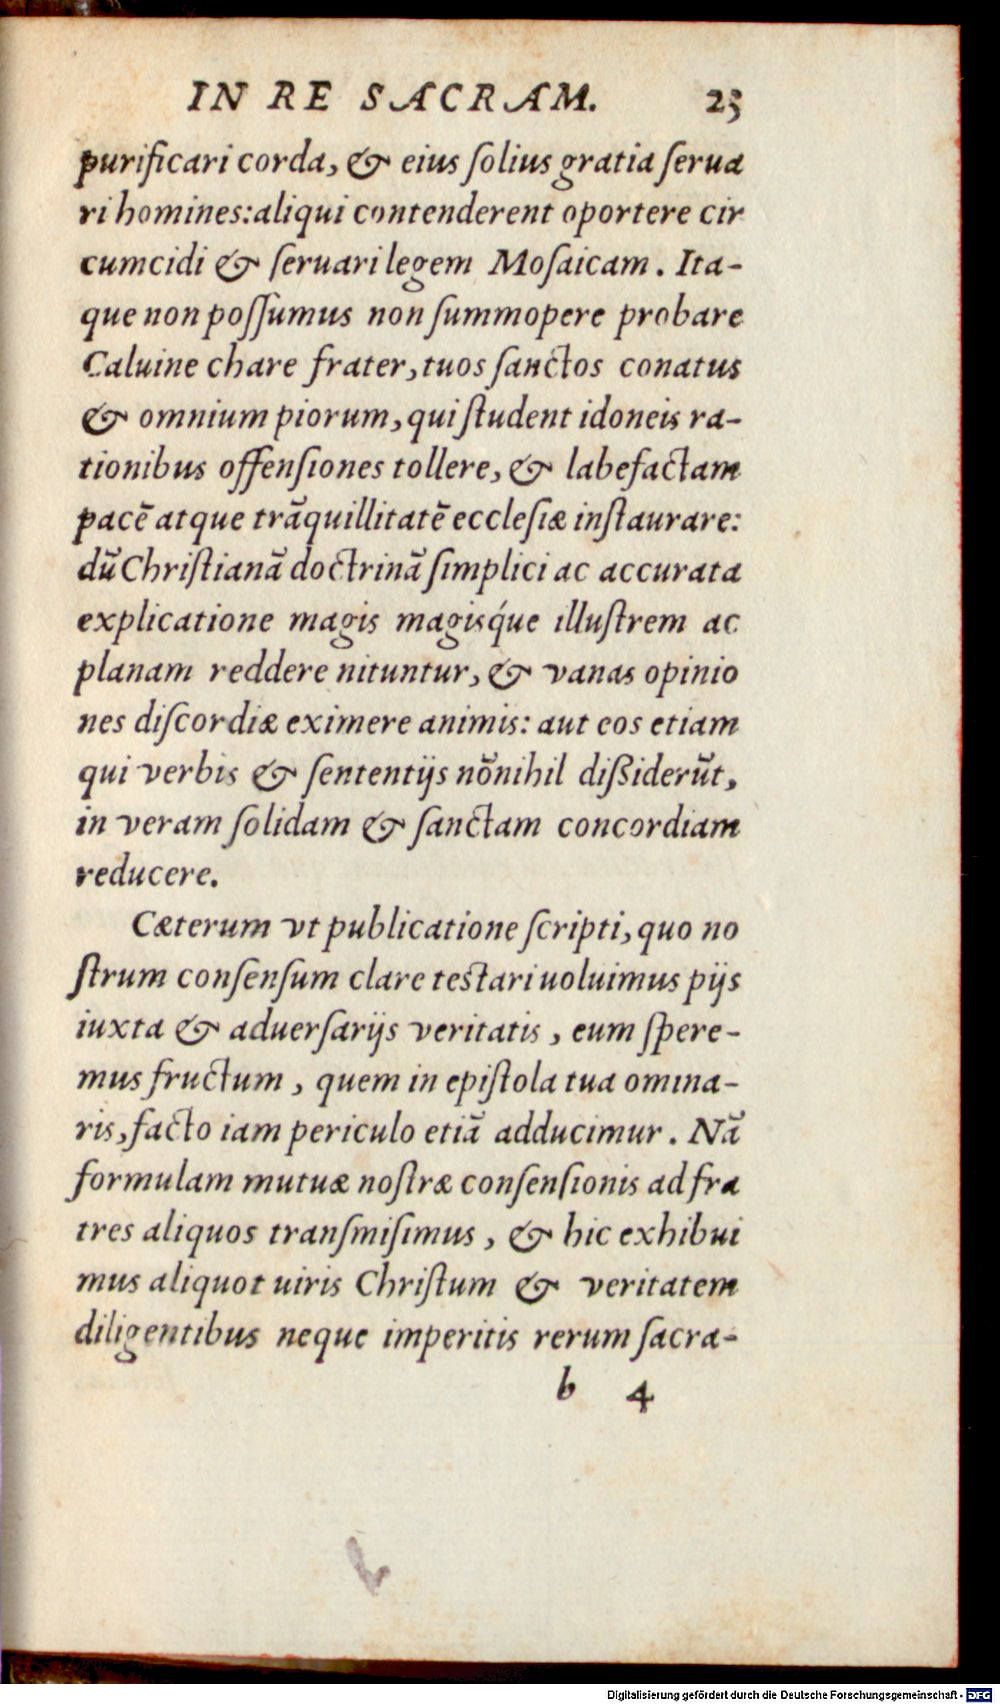 IN RE SACRAM. 23
purificari corda, & eius ſolius gratia ſerua
ri homines: aliqui contenderent oportere cir
cumcidi & ſeruari legem Moſaicam. Ita-
que non poſſumus non ſummopere probare
Caluine chare frater, tuos ſanctos conatus
& omnium piorum, qui ſtudent idoneis ra-
tionibus offenſiones tollere, & labefactam
pacē atque trāquillitatē eccleſiæ inſtaurare:
dū Chriſtianā doctrinā ſimplici ac accurata
explicatione magis magisq́ue illuſtrem ac
planam reddere nituntur, & vanas opinio
nes diſcordiæ eximere animis: aut eos etiam
qui verbis & ſententijs nōnihil dißiderūt,
in veram ſolidam & ſanctam concordiam
reducere.
Cæterum vt publicatione ſcripti, quo no
ſtrum conſenſum clare testari uoluimus pijs
iuxta & aduerſarijs veritatis, eum ſpere-
mus fructum, quem in epiſtola tua omina-
ris, facto iam periculo etiā adducimur. Nā
formulam mutuæ noſtræ conſenſionis ad fra
tres aliquos tranſmiſimus, & hic exhibui
mus aliquot uiris Chriſtum & veritatem
diligentibus neque imperitis rerum ſacra-
b 4
Digitalisierung gefördert durch die Deutsche Forschungsgemeinschaft - DFG